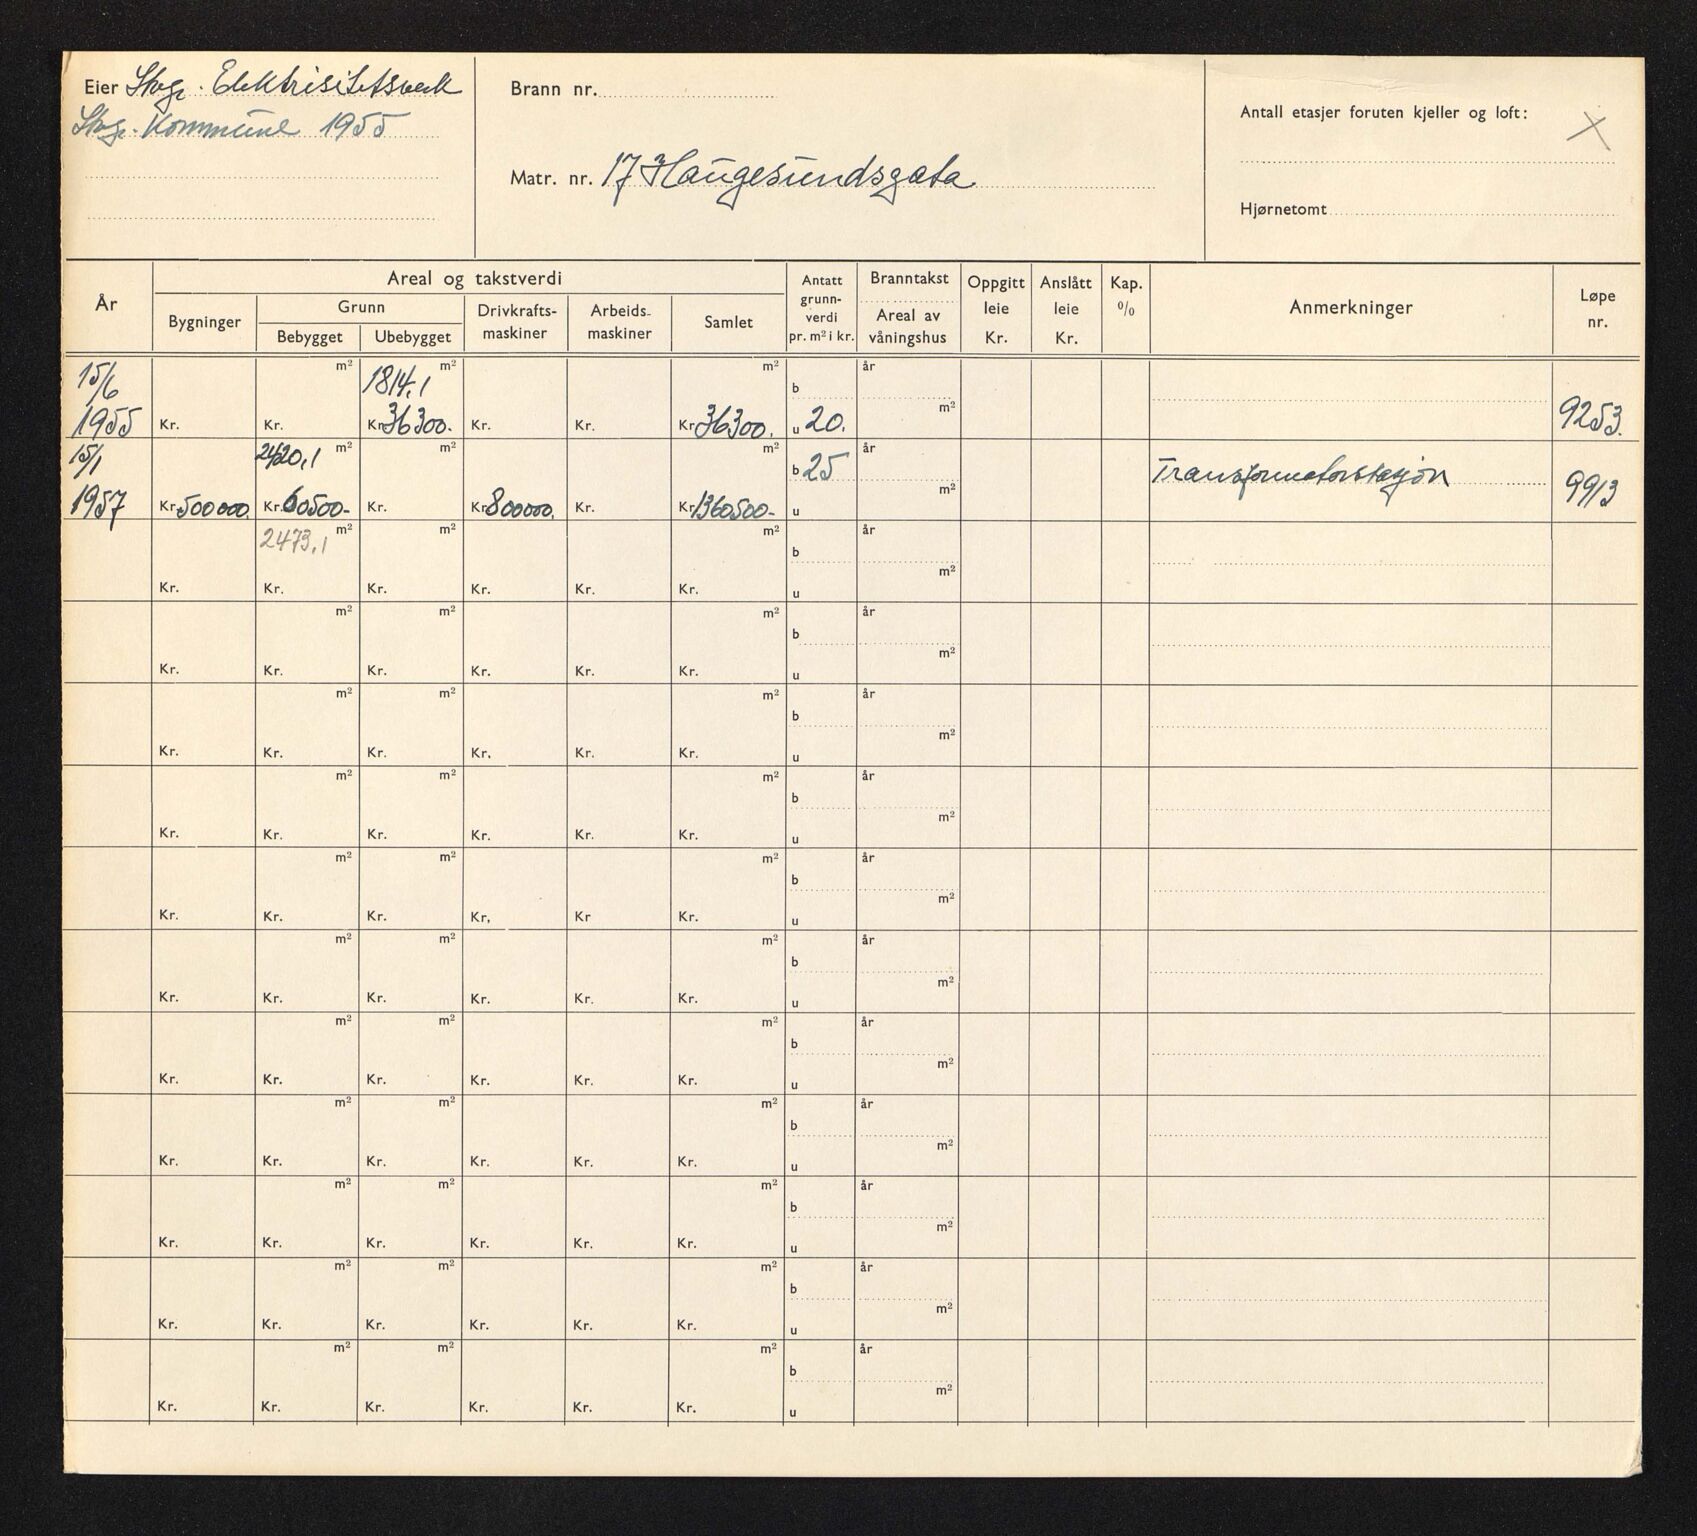 Eier Stvgr. Elektrisitetsverk
Stvgr. Kommune 1955
Brann nr.
Matr. nr. 17 Haugesundsgata
Antall etasjer foruten kjeller og loft:
X
Hjørnetomt
År
Areal og takstverdi
Bygninger
Grunn
Bebygget Ubebygget
Drivkrafts-
maskiner
Arbeids-
maskiner
Samlet
Antatt
grunn-
verdi
pr. m² i kr.
Branntakst
Areal av
våningshus
Oppgitt
leie
Kr.
Anslått
leie
Kr.
Kap.
%
Anmerkninger
Løpe
nr.
15/6 m² 1814,1 m² m² b år
1955 Kr. Kr. Kr. 36300.- Kr. Kr. Kr. 36300. u 20. m² 9253.
15/1 2420,1 m² m² m² b 25 år Transformatorstasjon
1957 Kr. 500000. Kr. 60500- Kr. Kr. 800000. Kr. Kr. 1360500- u m² 9913
2473,1 m² m² m² b år
Kr. Kr. Kr. Kr. Kr. Kr. u m²
m² m² m² b år
Kr. Kr. Kr. Kr. Kr. Kr. u m²
m² m² m² b år
Kr. Kr. Kr. Kr. Kr. Kr. u m²
m² m² m² b år
Kr. Kr. Kr. Kr. Kr. Kr. u m²
m² m² m² b år
Kr. Kr. Kr. Kr. Kr Kr. u m²
m² m² m² b år
Kr. Kr. Kr. Kr. Kr. Kr. u m²
m² m² m² b år
Kr. Kr. Kr. Kr. Kr. Kr. u m²
m² m² m² b år
Kr. Kr. Kr. Kr. Kr. Kr. u m²
m² m² m² b år
Kr. Kr. Kr. Kr. Kr. Kr. u m²
m² m² m² b år
Kr. Kr. Kr. Kr. Kr. Kr. u m²
m² m² m² b år
Kr. Kr. Kr. Kr. Kr. Kr. u m²